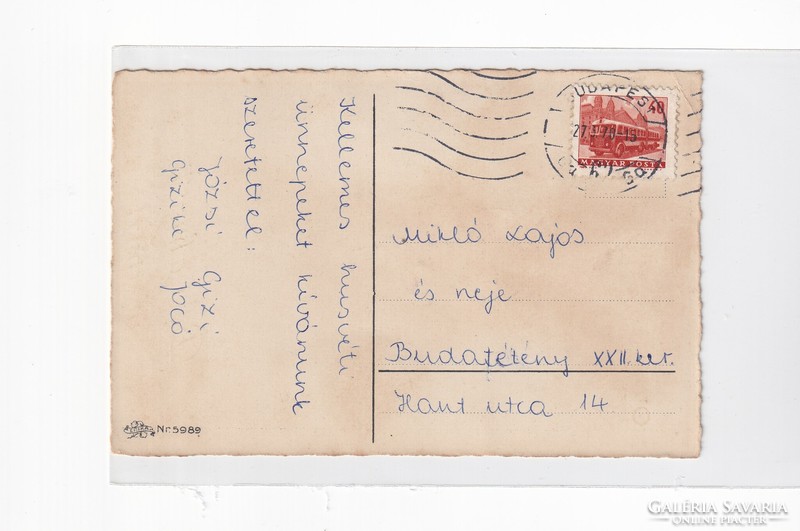 Kellemes husvéti
ünnepeket kívánunk
szeretettel:
Józsi Gizi
Gizike Jocó
Nr. 5989
BUDAPEST
40
MAGYAR POSTA
Mikló Lajos
és neje
Budatétény XXII. ker.
Hant utca 14
GALÉRIA SAVARIA
ONLINE PIACTÉR